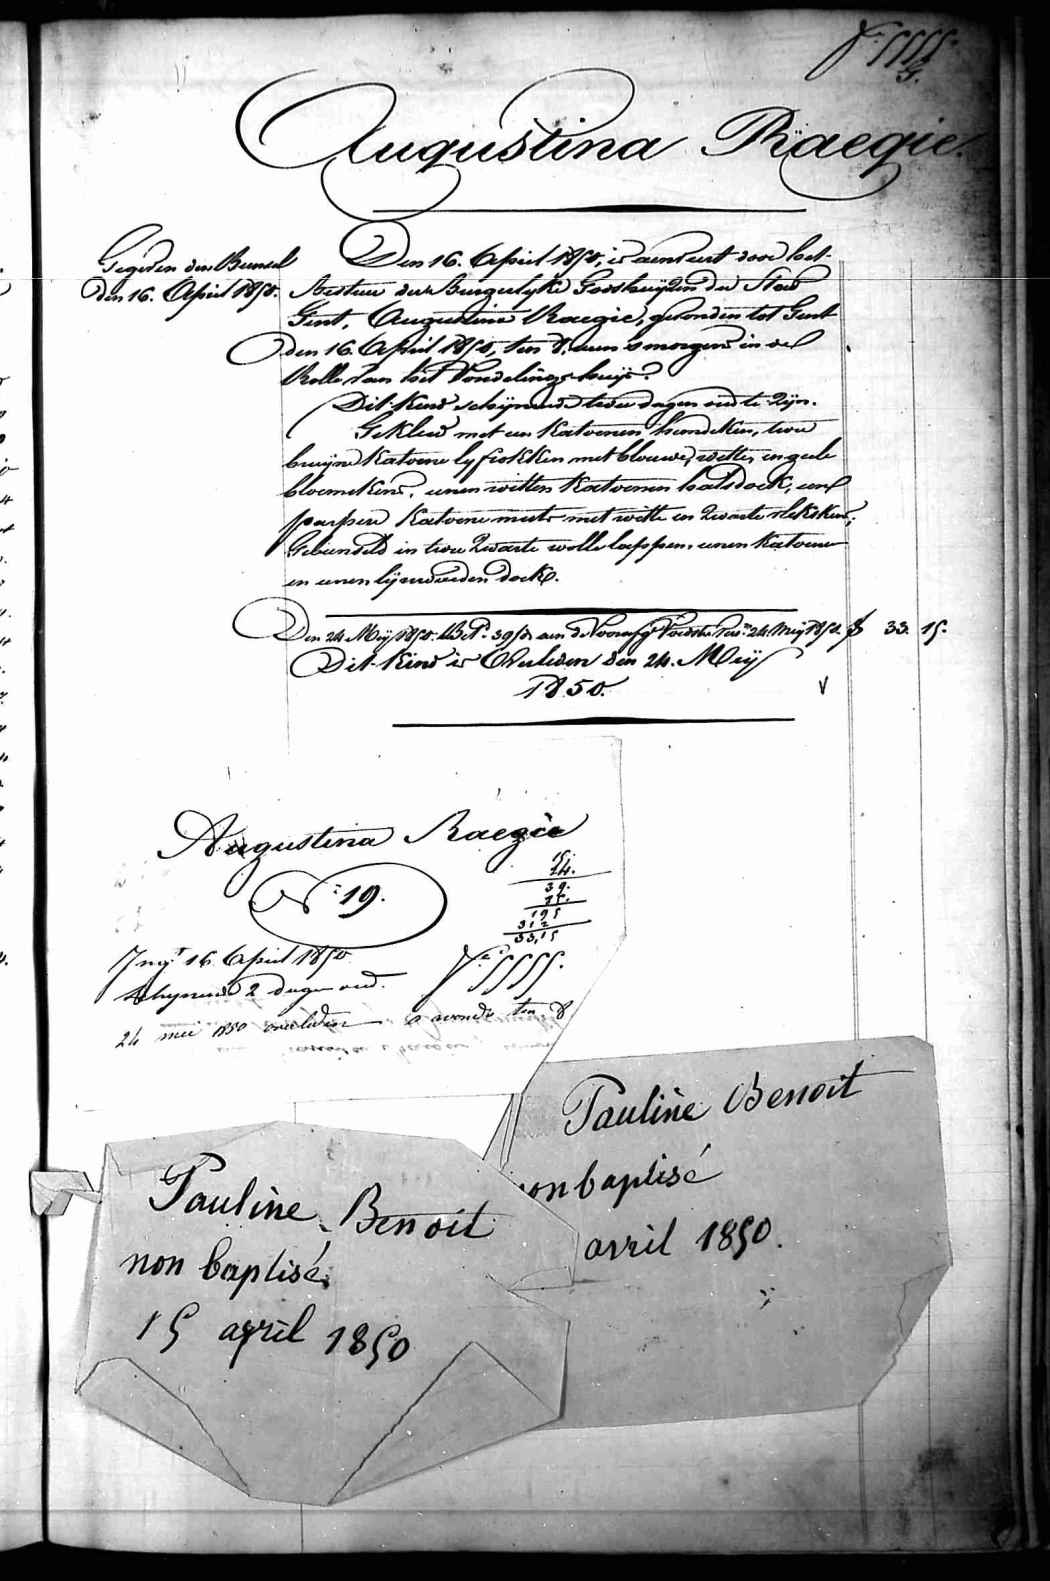 Augustina Raegie.
Gegeven den Bundel
den 16. April 1850.
Den 16. April 1850, is aenveert door het
Bestuer der Burgerlyke Godshuijzen der Stad
Gent, Augustina Raegie, gevonden tot Gent
den 16. April 1850, ten 8 uren 's morgens in de
Rolle van het Vondelingshuijs.
Dit Kind schijnende twee dagen oud te zijn.
Gekleed met een Katoenen hemdeken, twee
bruijne Katoene lyfrokken met blauwe, witte, en geele
bloemekens, eenen witten Katoenen halsdoek, eene
purpere Katoene muts met witte en Zwarte vlekskens,
Gebundeld in twee Zwarte wolle lappen, eenen Katoenen
en eenen lijnwaeden doek.
Den 24 Meij 1850. Bet. 39 d. aen de Voedster 24 Meij 1850. 33. 15.
Dit Kind is Overleden den 24. Meij
1850.
Augustina Raegie
15.
24.
39.
N.º 19.
195
312
33,15
Ing.t 16 April 1850
schijnende 2 dagen oud.
24 mei 1850 overleden s'avonds ten 8
Pauline Benoit
non baptisé
avril 1850.
Pauline Benoit
non baptisé
15 avril 1850